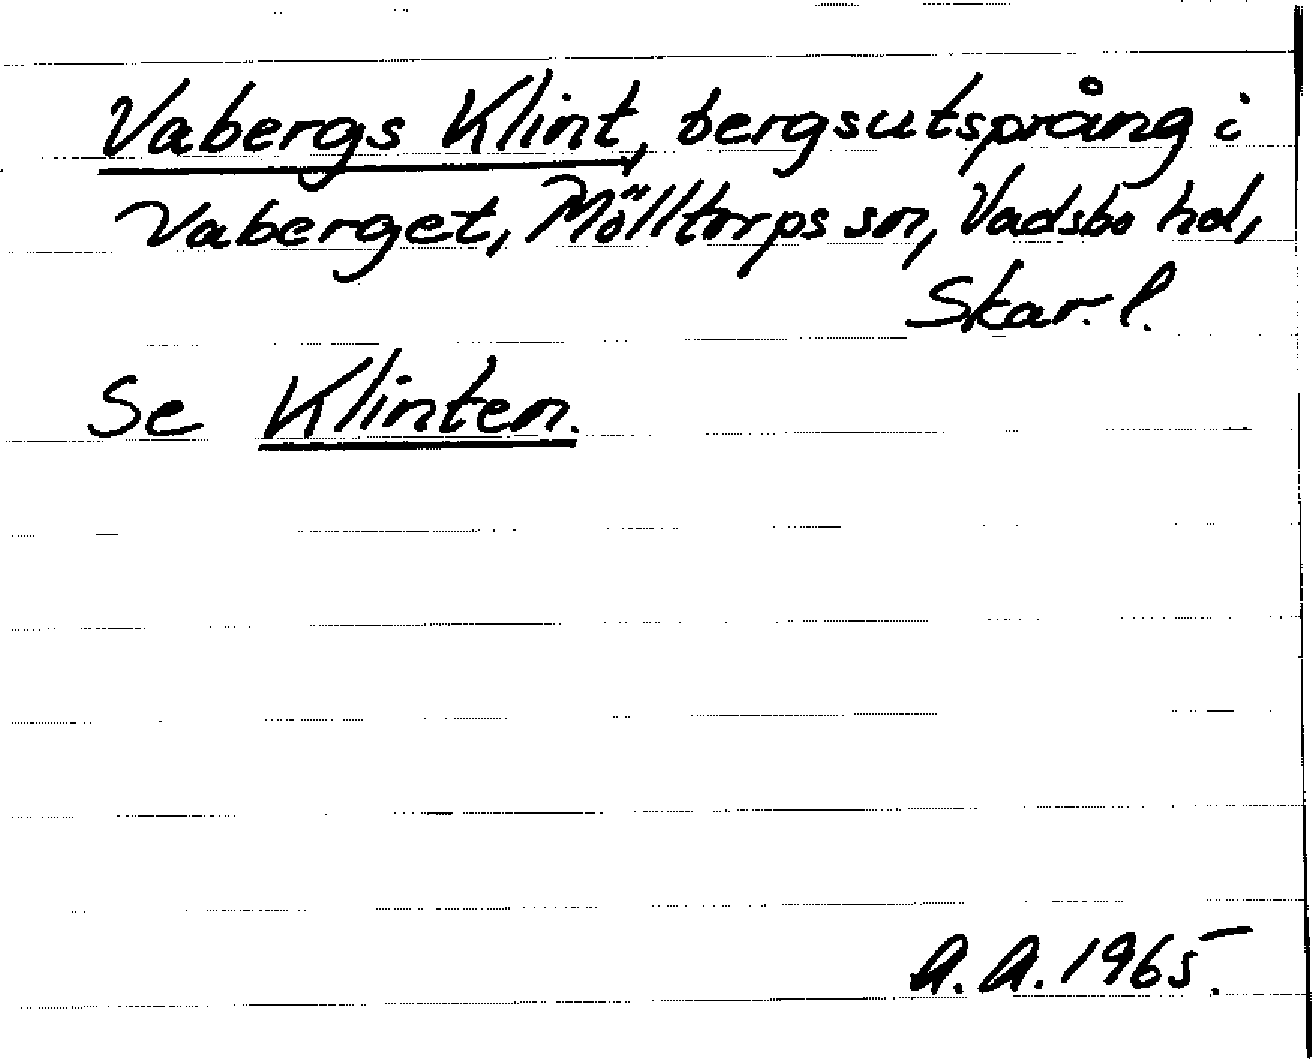 Vabergs Klint, bergsutsprång i
Vaberget, Mölltorps sn, Vadsbo hd,
Skar. l.
Se Klinten.
A. A. 1965.